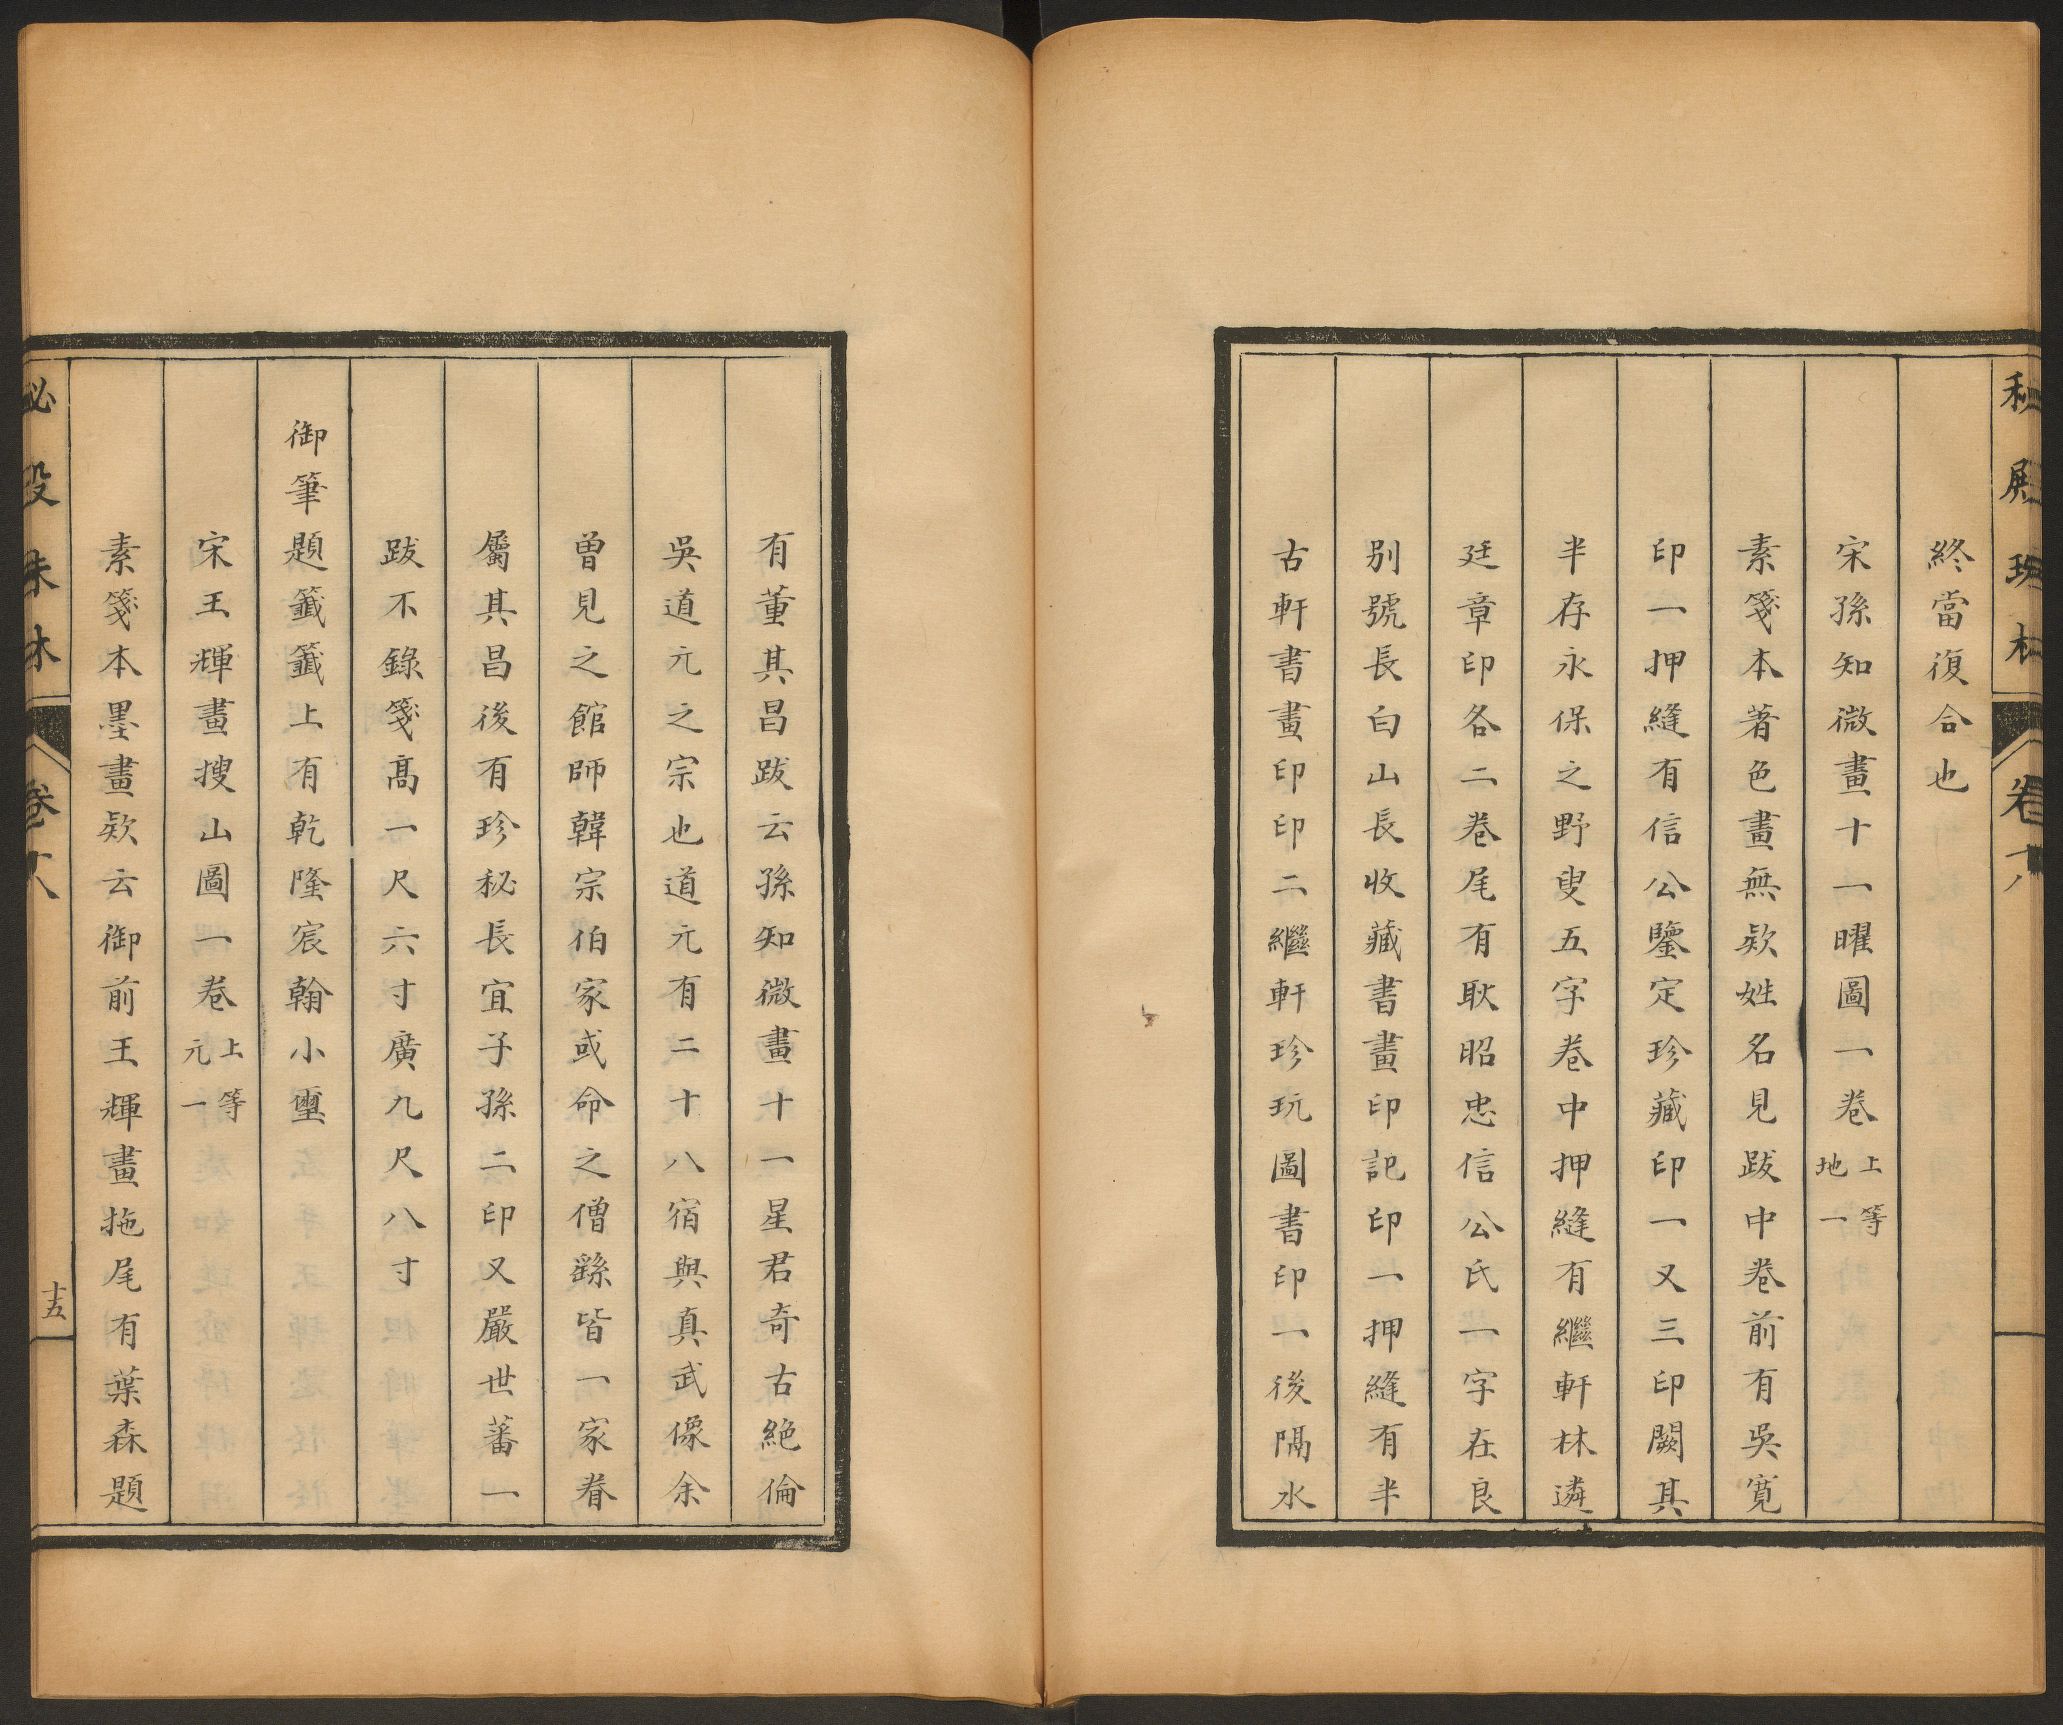 終當復合也
宋孫知微畫十一曜圖一卷上等地一
素箋本著色畫無欵姓名見跋中卷前有吳寬
印一押縫有信公鑒定珍藏印一又三印闕其
半存永保之野叟五字卷中押縫有繼軒林遴
廷章印各二卷尾有耿昭忠信公氏一字在良
別號長白山長收藏書畫印記印一押縫有半
古軒書畫印印二繼軒珍玩圖書印一後隔水
有董其昌跋云孫知微畫十一星君奇古絶倫
吳道元之宗也道元有二十八宿與真武像余
曾見之館師韓宗伯家或命之僧繇皆一家眷
屬其昌後有珍秘長宜子孫二印又嚴世蕃一
跋不錄箋高一尺六寸廣九尺八寸
御筆題籤籤上有乾隆宸翰小璽
宋王輝畫搜山圖一卷上等元一
素箋本墨畫欵云御前王輝畫拖尾有葉森題
祕殿珠林
卷十八
十五